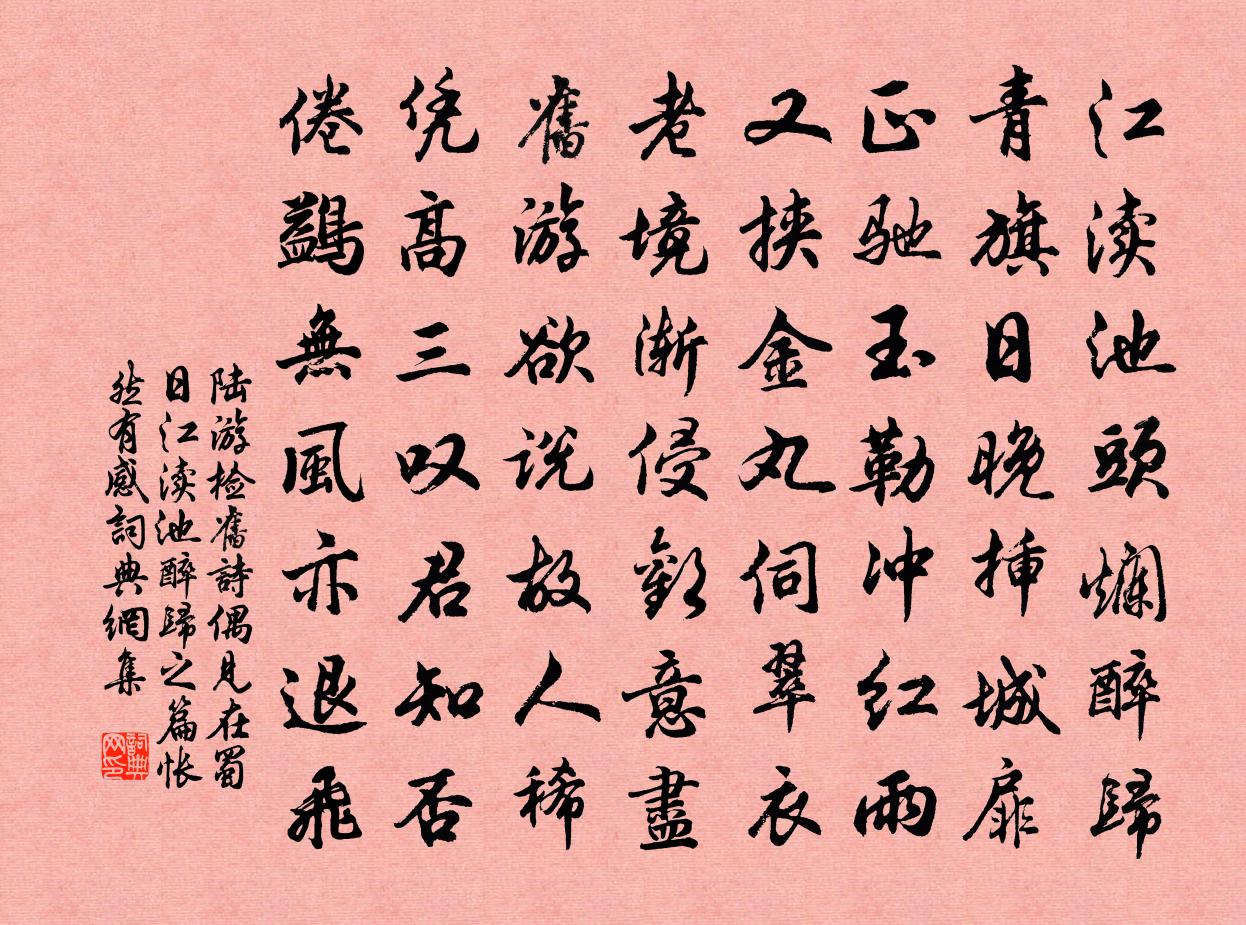 江渎池頭爛醉歸
青旗日晚掩城扉
正馳玉勒沖红雨
又挟金丸伺翠衣
老境漸侵歡意盡
舊游欲说故人稀
凭高三叹君知否
倦鷁無風亦退飛
陆游检舊詩偶見在蜀
日江渎池醉歸之篇怅
然有感詞典網集
詞典网印